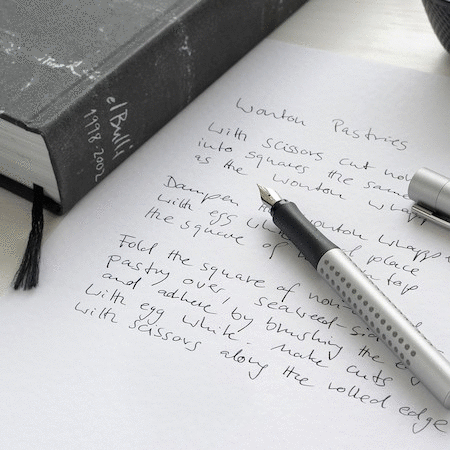 elBulli
1998-2002
Wonton Pastries
With scissors cut nori
into squares the same
as the wonton wrapp
Dampen the wonton wrapp
with egg place
the square of on top
Fold the square of nori
pastry over, seaweed-si
and adhere by brushing the e
with egg white. Make cuts
with scissors along the rolled edge